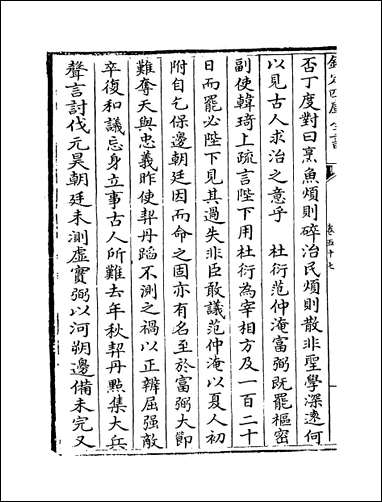 欽定四庫全書
卷五十七
否丁度對曰烹魚煩則碎治民煩則散非聖學深遠何
以見古人求治之意乎　杜衍范仲淹富弼既罷樞密
副使韓琦上疏言陛下用杜衍為宰相方及一百二十
日而罷必陛下見其過失非臣敢議范仲淹以夏人初
附自乞保邊朝廷因而命之固亦有名至於富弼大節
難奪天與忠義昨使契丹蹈不測之禍以正辨屈强敵
卒復和議忘身立事古人所難去年秋契丹點集大兵
聲言討伐元昊朝廷未測虛實弼以河朔邊備未完又